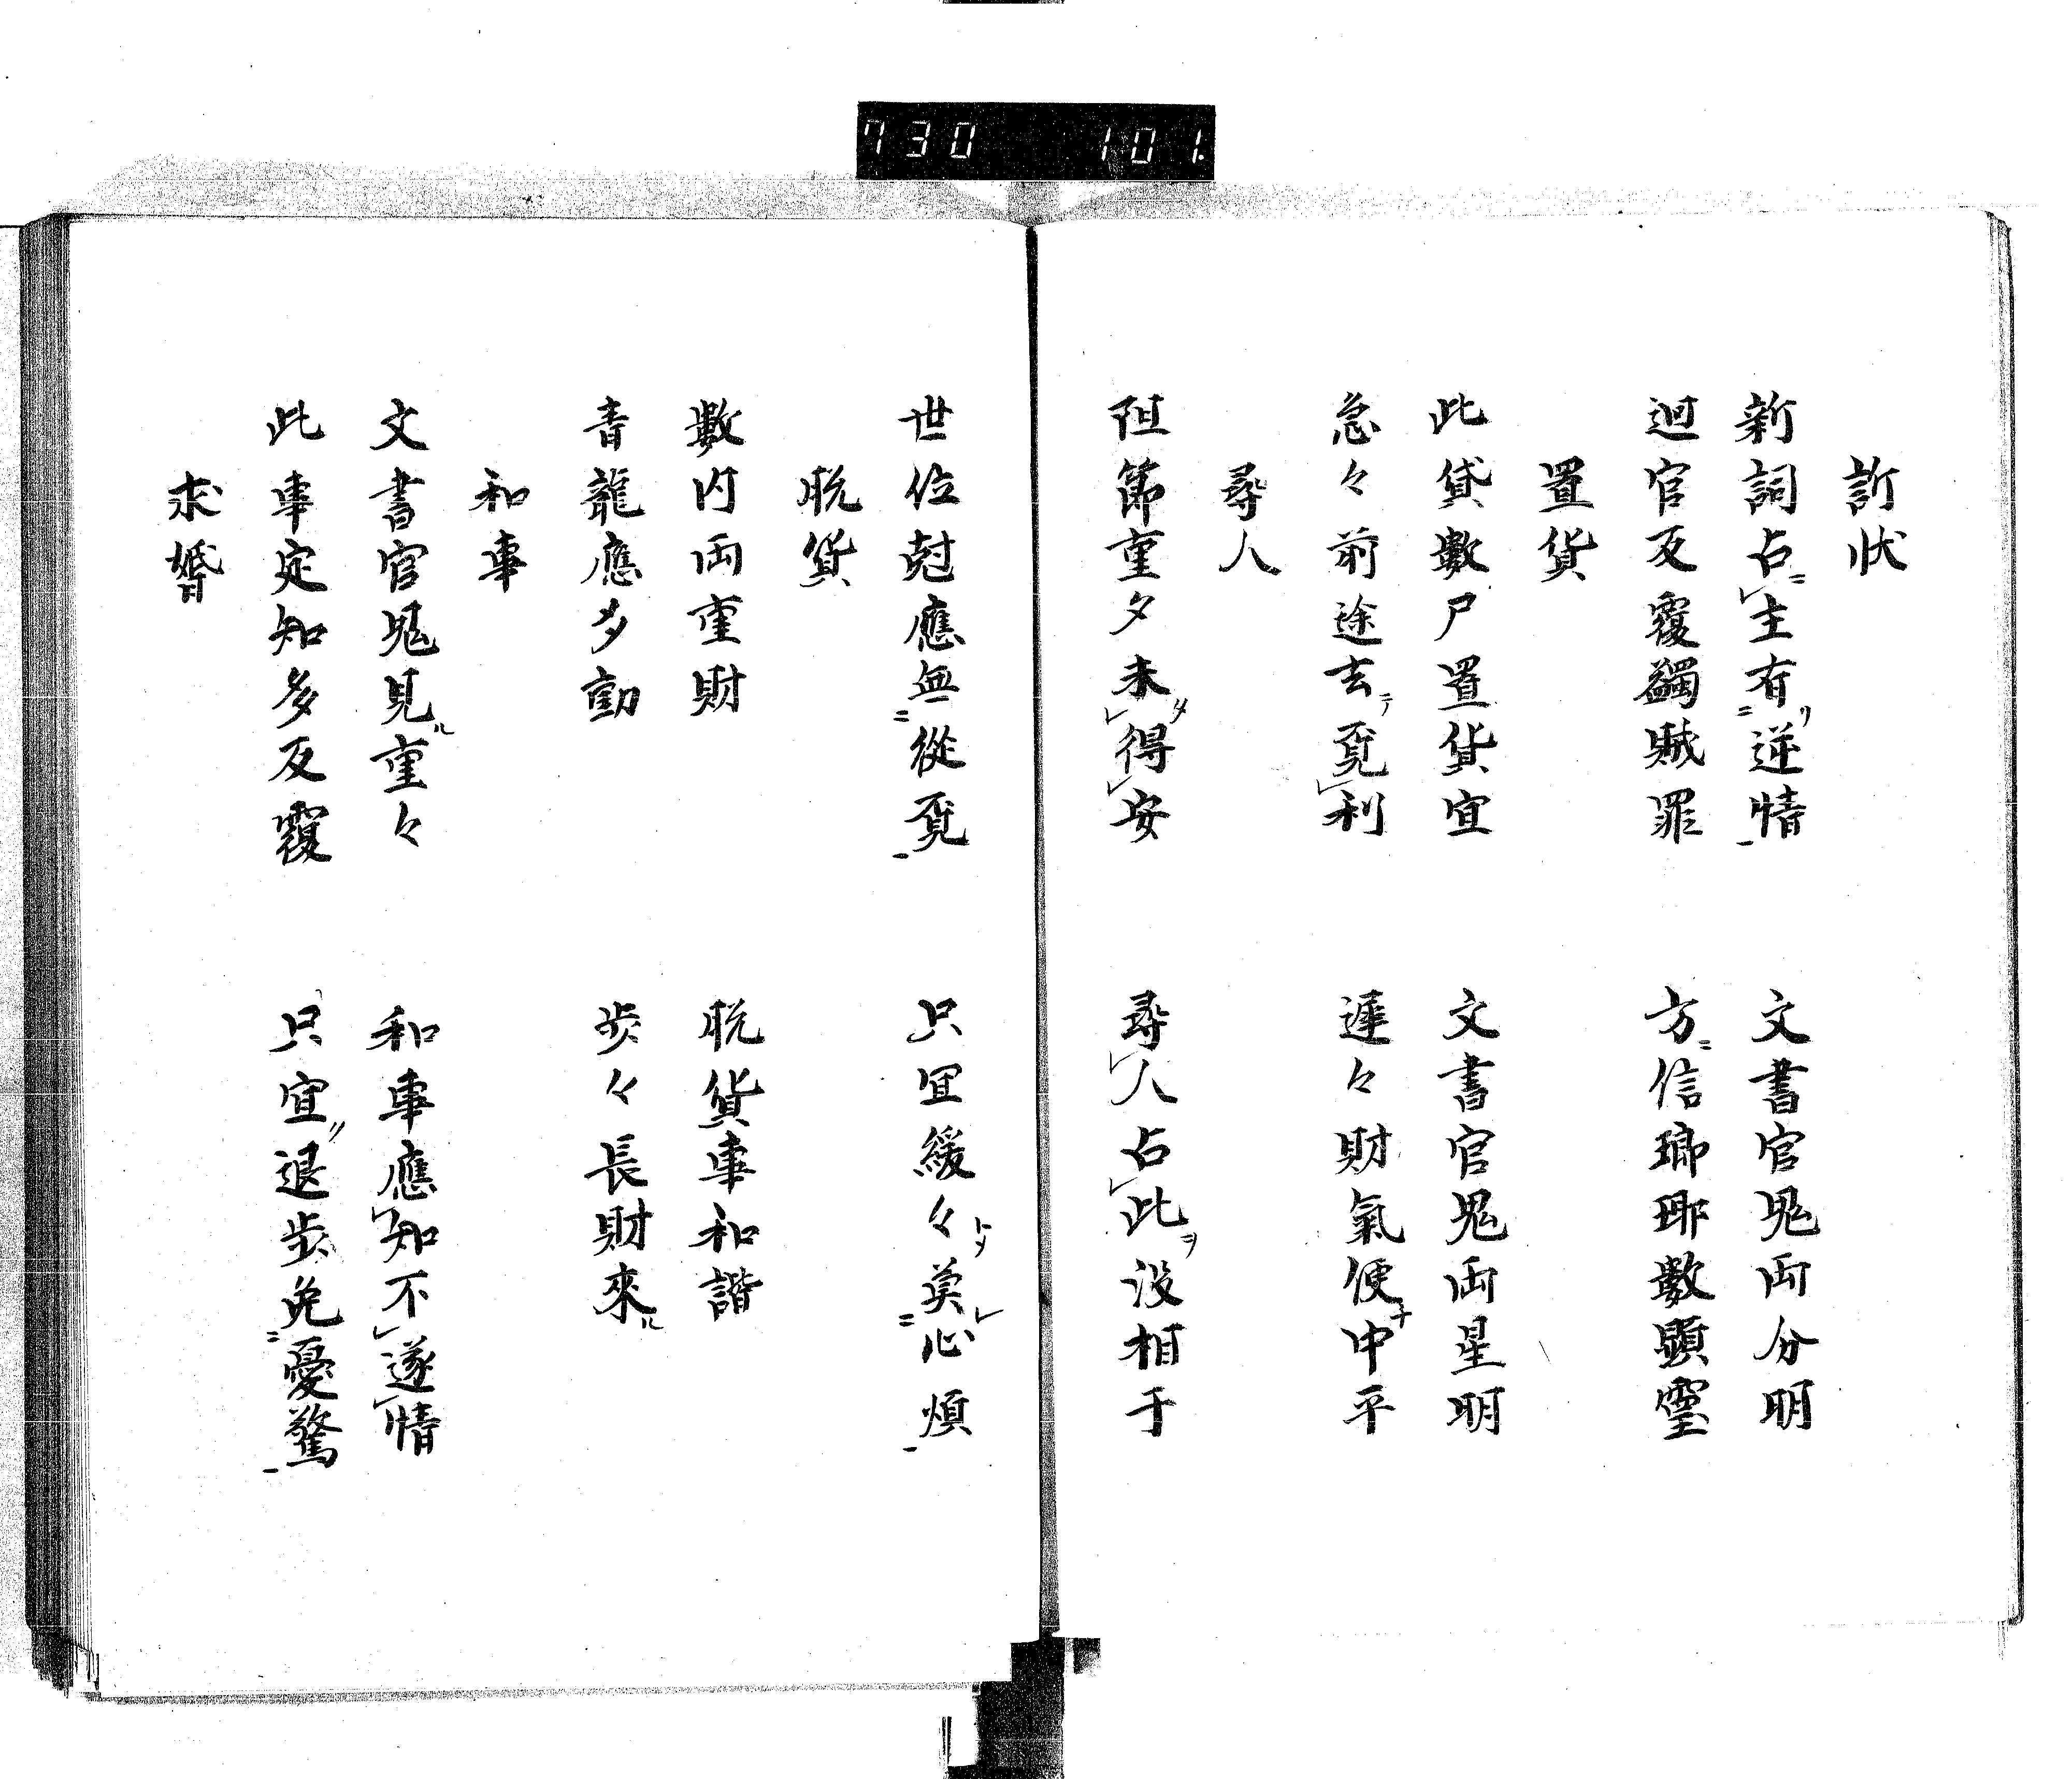 730 101.
訢状
新詞占主有逆情 文書官鬼両分明
迴官反覆蠲賊罪 方信瑯琊數顕霊
置貨
此貸數尸置貨宜 文書官鬼両星明
急々前途去覓利 遅々財氣便中平
尋人
阻節重夕未得安 尋人占此没相于
世位尅應無從覓 只宜緩々莫心煩
脱貨
數内両重財 脱貨事和諧
青龍應多動 歩々長財來
和事
文書官鬼見重々 和事應知不遂情
此事定知多反覆 只宜退歩免憂驚
求婚